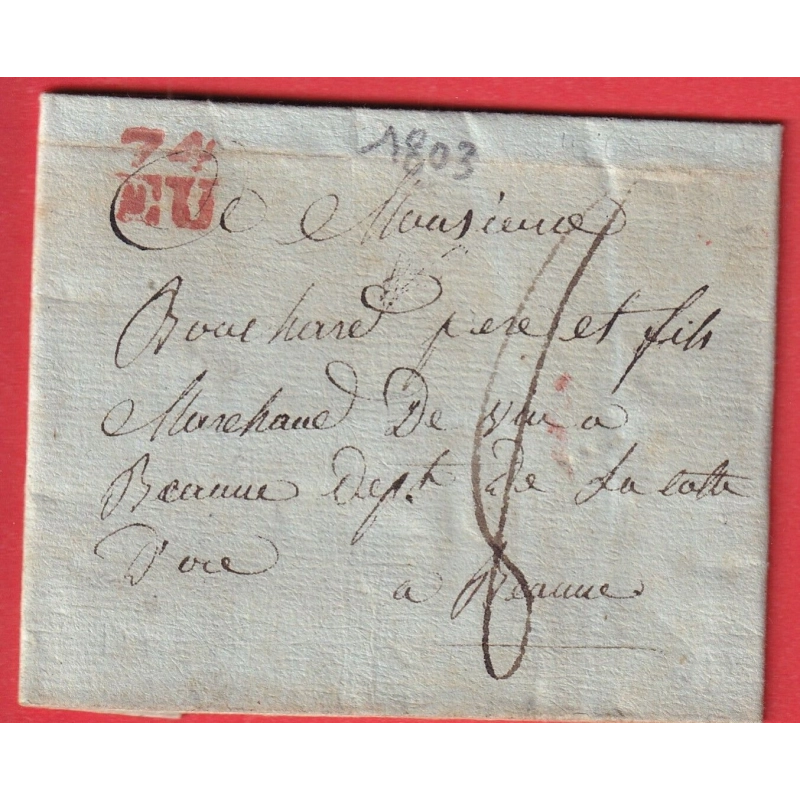 1803
74
EU
A Monsieur
Bouchard pere et fils
Marchand De vin a
Beaune dept. De La cotte
D'ore
a Beaune
8